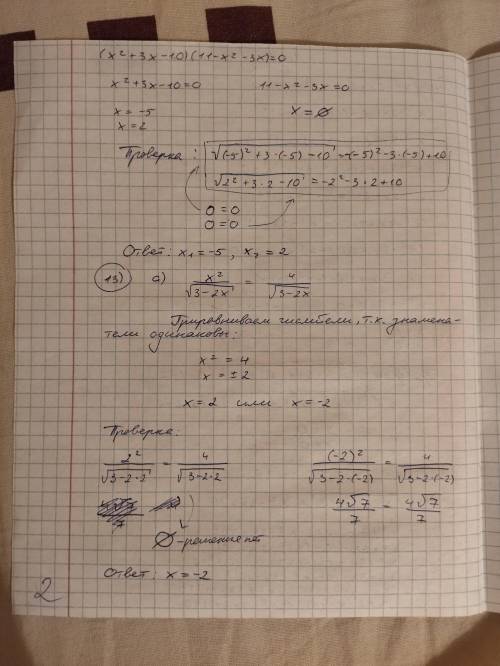 (x²+3x-10)(11-x²-3x)=0
x²+3x-10=0 11-x²-3x=0
x=-5 x=∅
x=2
Проверка: √((-5)²+3·(-5)-10)=-(-5)²-3·(-5)+10
√(2²+3·2-10)=-2²-3·2+10
0=0
0=0
Ответ: x₁=-5, x₂=2
13) а) x²/√(3-2x) = 4/√(3-2x)
Прировниваем числители, т.к. знамена-
тели одинаковы:
x²=4
x=±2
x=2 или x=-2
Проверка:
2²/√(3-2·2) = 4/√(3-2·2) (-2)²/√(3-2·(-2)) = 4/√(3-2·(-2))
4√7/7 = 4√7/7
∅-решение нет
Ответ: x=-2
2